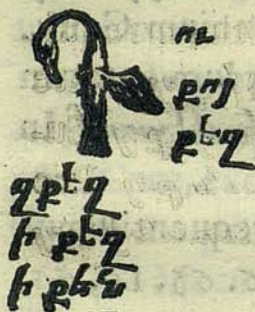 Դու
քոյ
քեզ
զքեզ
ի քեզ
ի քէն